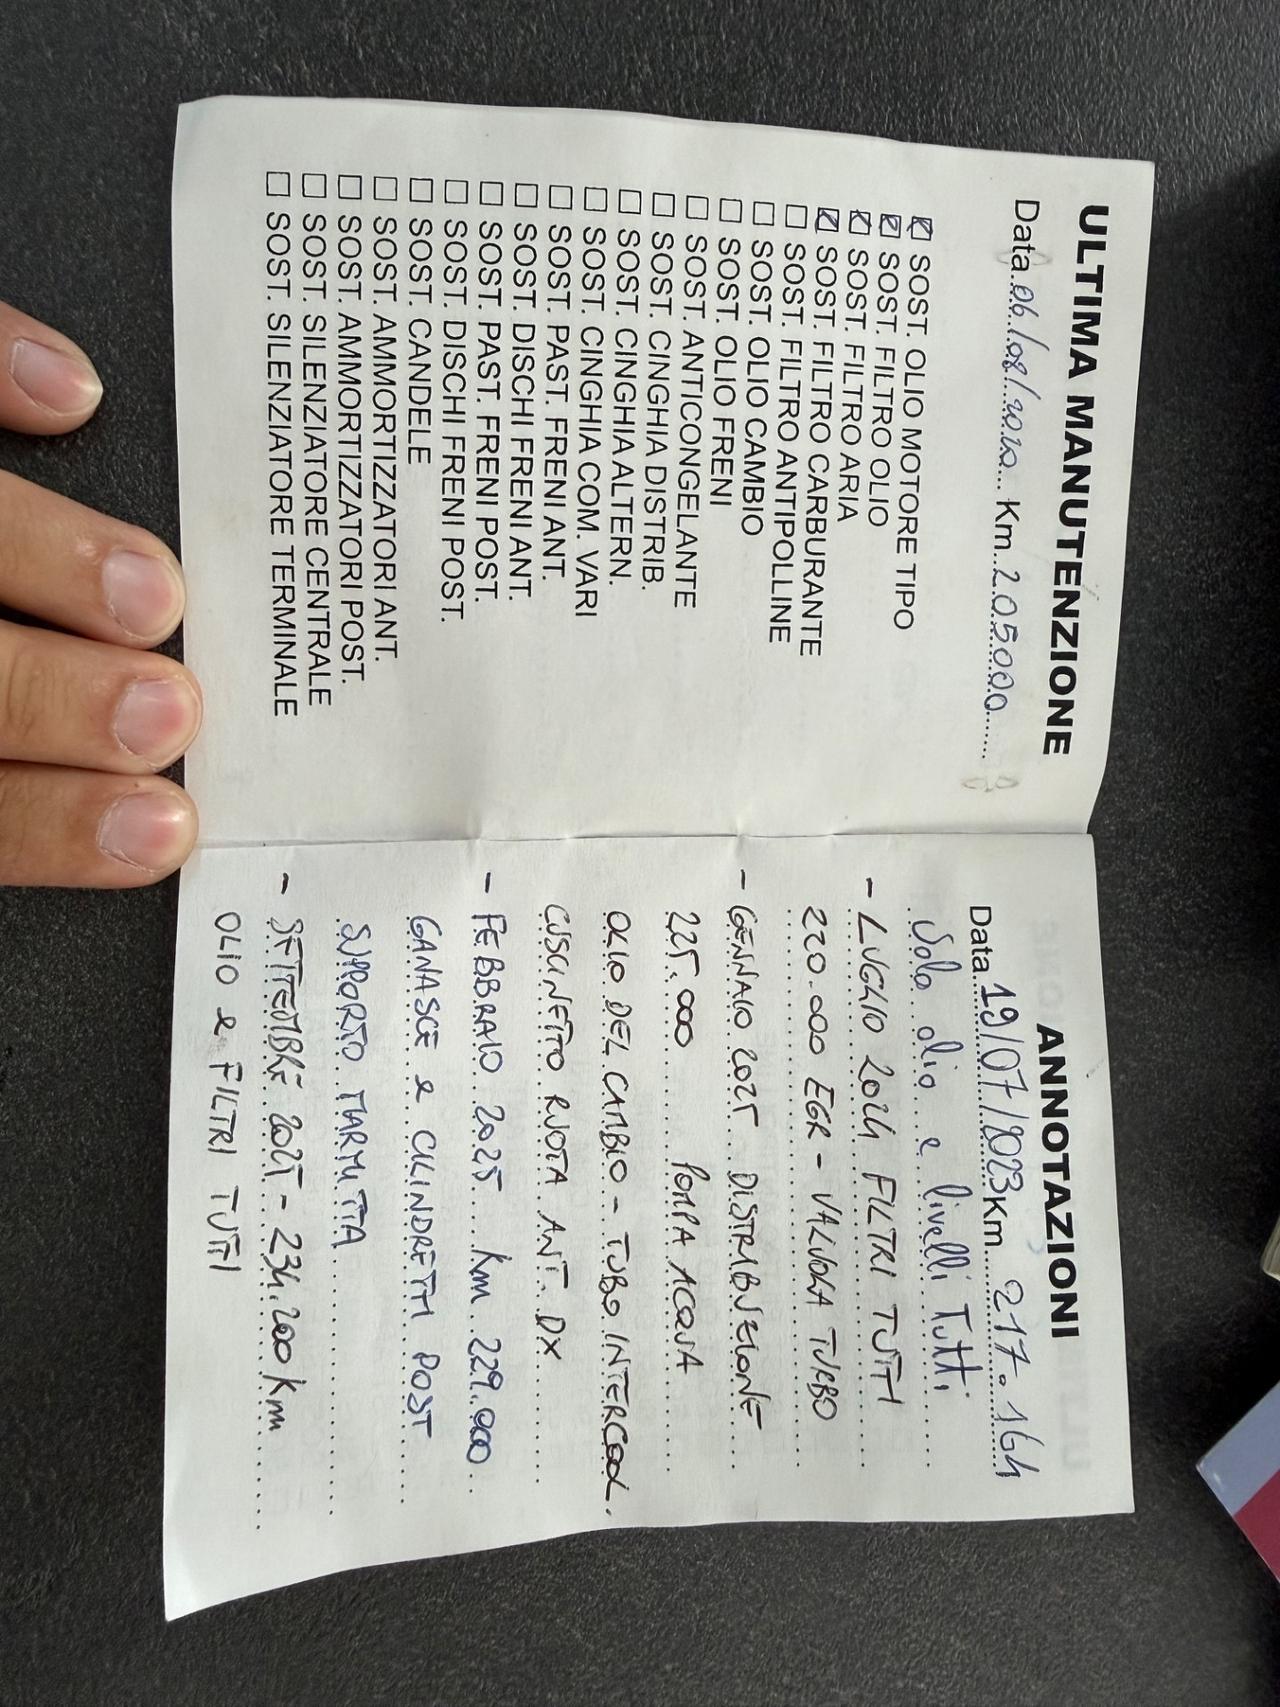 ULTIMA MANUTENZIONE
Data 06/08/2020 Km 205000
SOST. OLIO MOTORE TIPO
SOST. FILTRO OLIO
SOST. FILTRO ARIA
SOST. FILTRO CARBURANTE
SOST. FILTRO ANTIPOLLINE
SOST. OLIO CAMBIO
SOST. OLIO FRENI
SOST. ANTICONGELANTE
SOST. CINGHIA DISTRIB.
SOST. CINGHIA ALTERN.
SOST. CINGHIA COM. VARI
SOST. PAST. FRENI ANT.
SOST. DISCHI FRENI ANT.
SOST. PAST. FRENI POST.
SOST. DISCHI FRENI POST.
SOST. CANDELE
SOST. AMMORTIZZATORI ANT.
SOST. AMMORTIZZATORI POST.
SOST. SILENZIATORE CENTRALE
SOST. SILENZIATORE TERMINALE
ANNOTAZIONI
Data 19/07/2023 Km 217.164
Solo olio e livelli Tutti
- LUGLIO 2024 FILTRI TUTTI
220.000 EGR - VALVOLA TURBO
- GENNAIO 2025 DISTRIBUZIONE
225.000 POMPA ACQUA
OLIO DEL CAMBIO - TUBO INTERCOOL.
CUSCINETTO RUOTA ANT. DX
- FEBBRAIO 2025 Km 229.000
GANASCE e CILINDRETTI POST
SUPPORTO MARMITTA
- SETTEMBRE 2025 - 234.200 Km
OLIO e FILTRI TUTTI